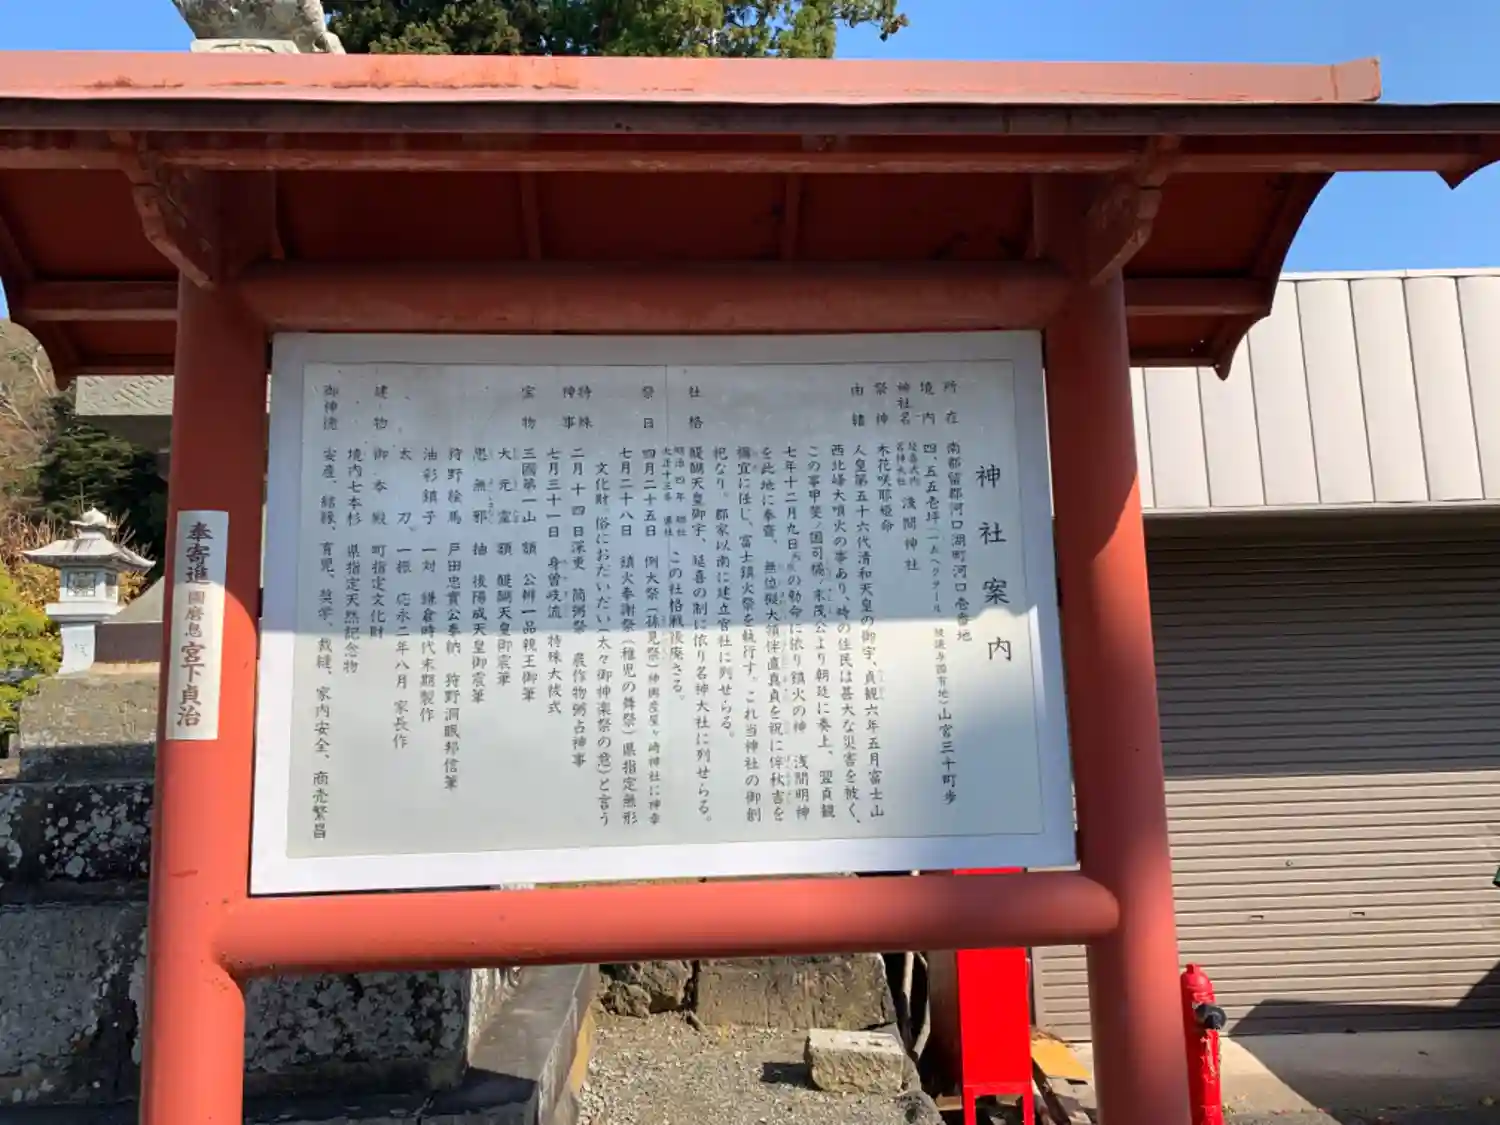 神社案内
所在 南都留郡河口湖町河口壱番地
境内 四、五五壱坪
山宮三十町歩
神社名 延喜式内名神大社 浅間神社
祭神 木花咲耶姫命
由緒 人皇第五十六代清和天皇の御宇、貞観六年五月富士山
西北峰大噴火の事あり、時の住民は甚大な災害を被く、
この事甲斐ノ国司橘ノ末茂公より朝廷に奏上、翌貞観
七年十二月九日の勅命に依り鎮火の神 浅間明神
を此地に奉齋。無位擬大領伴直真貞を祝に伴秋吉を
禰宜に任じ、富士鎮火祭を執行す。これ当神社の御創
祀なり。郡家以南に建立官社に列せらる。
醍醐天皇御宇、延喜の制に依り名神大社に列せらる。
社格 明治四年 郷社 大正十三年 県社 この社格戦後廃さる。
祭日 四月二十五日 例大祭(孫見祭)神輿産屋ヶ崎神社に神幸
七月二十八日 鎮火奉謝祭(稚児の舞祭)県指定無形
文化財。俗におだいだい(太々御神楽祭の意)と言う
特殊神事 二月十四日深更 筒粥祭 農作物粥占神事
七月三十一日 身曽岐流 特殊大祓式
宝物 三國第一山 額 公辨一品親王御筆
大元霊 額 醍醐天皇御宸筆
思無邪 軸 後陽成天皇御宸筆
狩野絵馬 戸田忠實公奉納 狩野洞眠邦信筆
油彩鎮子 一対 鎌倉時代末期製作
太刀 一振 応永二年八月 家長作
建物 御本殿 町指定文化財
境内七本杉 県指定天然記念物
御神徳 安産、結縁、育児、奨学、裁縫、家内安全、商売繁昌
奉寄進 宮下貞治